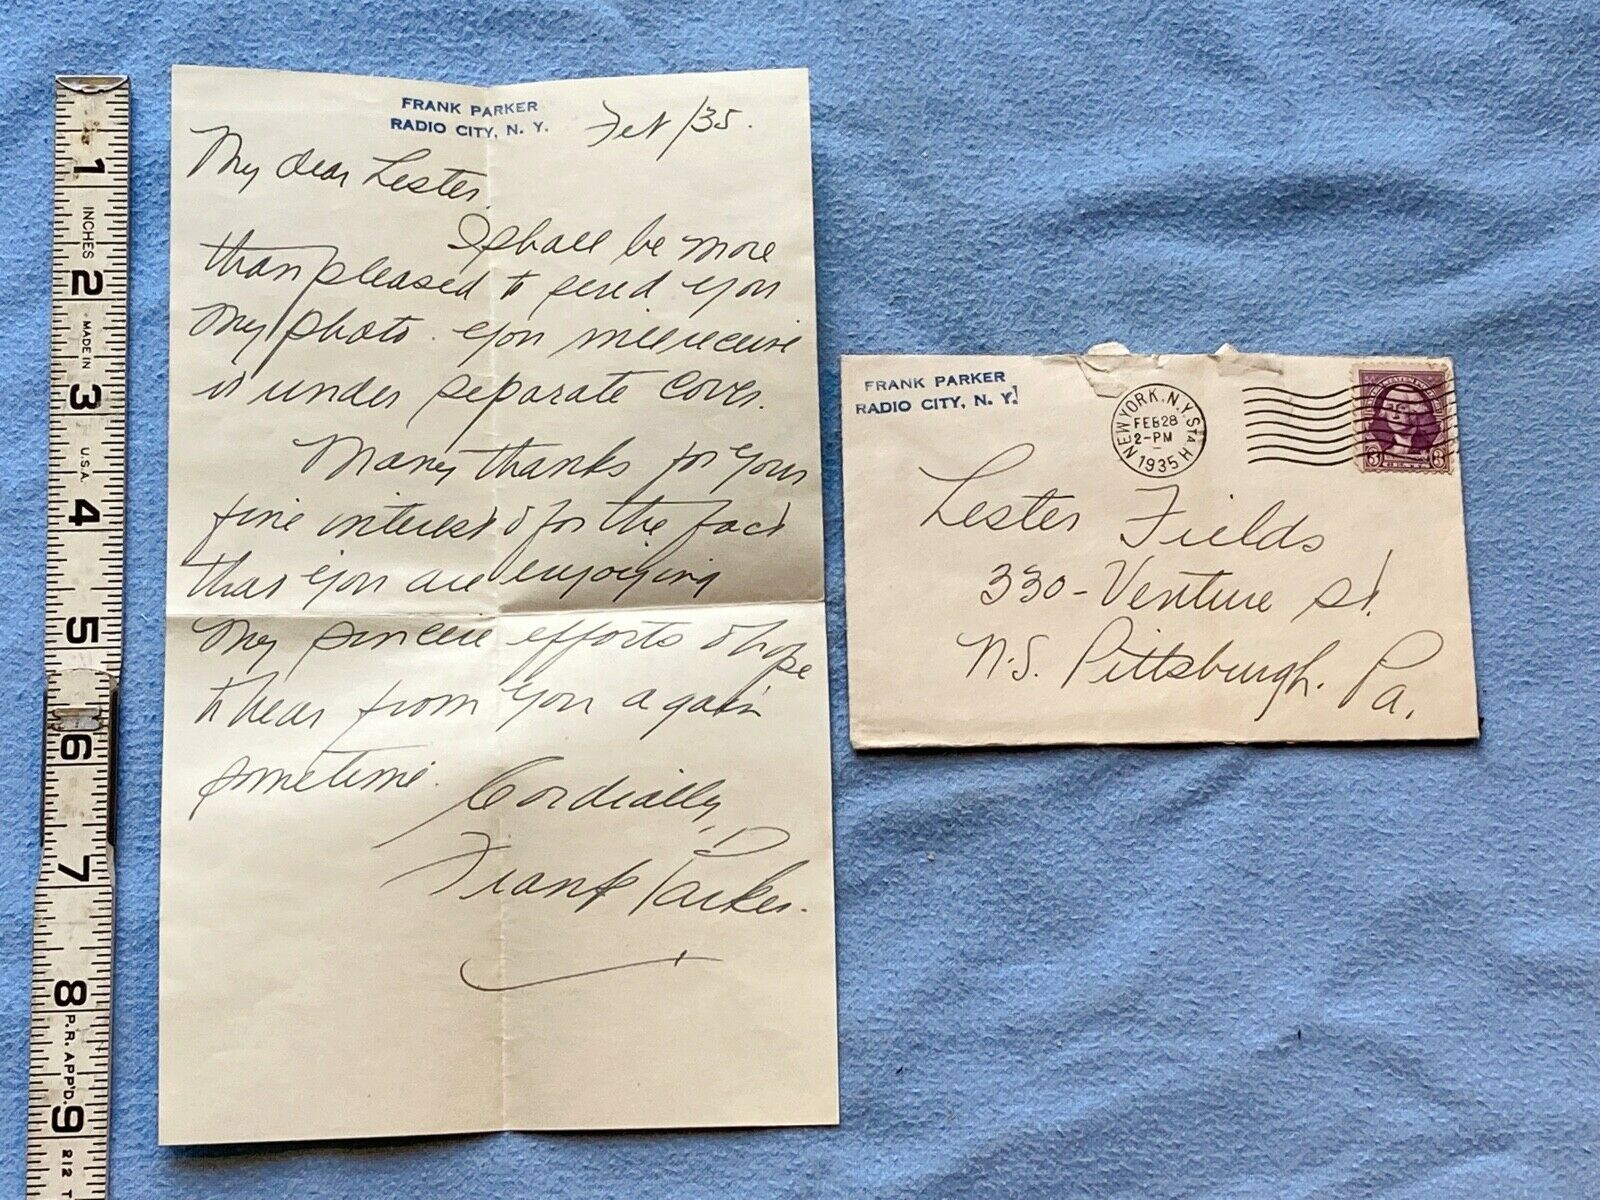 FRANK PARKER
RADIO CITY, N. Y.
Feb /35.
My dear Lester.
I shall be more
than pleased to send you
my photo. You will receive
is under separate cover.
Many thanks for your
fine interest & for the fact
that you are enjoying
my sincere efforts & hope
to hear from you again
sometime.
Cordially,
Frank Parker.
FRANK PARKER
RADIO CITY, N. Y.
NEW YORK, N.Y. STA H
FEB 28
2-PM
1935
3 CENTS 3
Lester Fields
330-Venture St.
N.S. Pittsburgh. Pa.
1
INCHES
2
MADE IN
3
U.S.A.
4
5
6
7
8
P.R. APP'D.
9